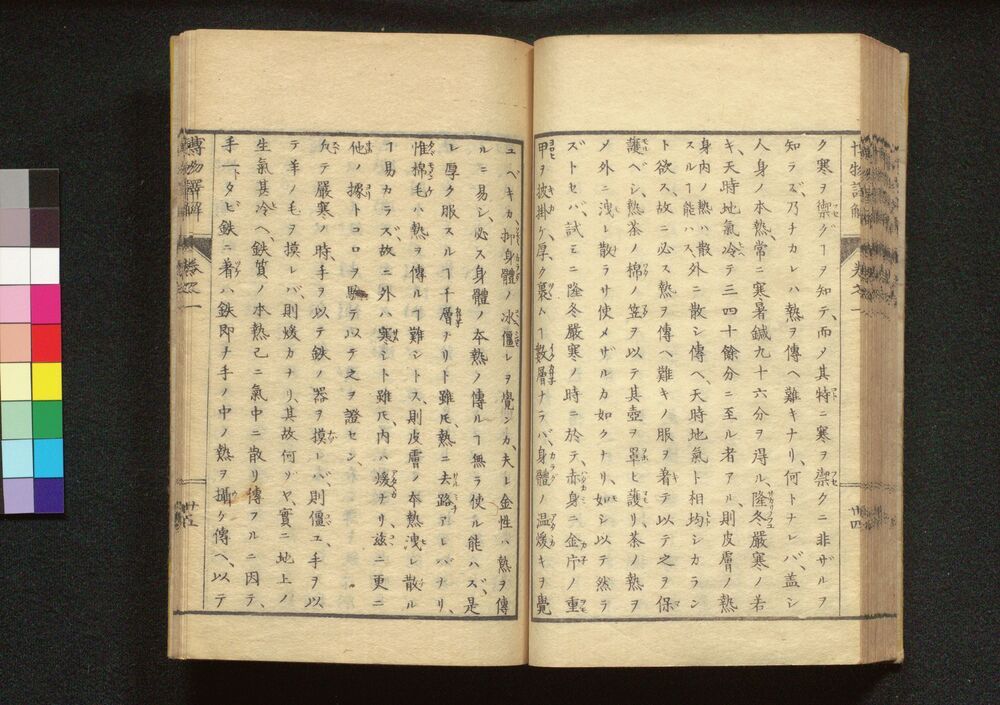 ク寒ヲ禦グヿヲ知テ、而メ其特ニ寒ヲ禦クニ非ザルヲ
知ラズ、乃チカレハ熱ヲ傳ヘ難キナリ、何トナレバ、盖シ
人身ノ本熱、常ニ寒暑鍼九十六分ヲ得ル、隆冬嚴寒ノ若
キ、天時地氣冷テ三四十餘分ニ至ル者アル則皮膚ノ熱
身内ノ熱ハ散外ニ散シ傳ヘ、天時地氣ト相均シカラン
スルヿ能ハス、
ト欲ス、故ニ必ス熱ヲ傳ヘ難キノ服ヲ着テ以テ之ヲ保
護ベシ、熱茶ノ棉ノ笠ヲ以テ其壺ヲ罩ヒ護リ、茶ノ熱ヲ
メ外ニ洩レ散ラサ使メザルカ如クナリ、如シ以テ然ラ
ズトセバ、試ミニ隆冬嚴寒ノ時ニ於テ、赤身ニ金片ノ重
甲ヲ彼掛ケ、厚ク裹ムヿ數層ナラバ、身體ノ温煖キヲ覺
ユベキカ、抑身體ノ冰僵レヲ覺ンカ、夫レ金性ハ熱ヲ傳
ルニ易シ、必ス身體ノ本熱ノ傳ルヿ無ラ使ル能ハズ、是
レ厚ク服スルヿ千層ナリト雖𪜈、熱ニ去路アレバナリ、
惟棉毛ハ熱ヲ傳ルヿ難シトス、則皮膚ノ本熱洩レ散ル
ヿ易カラズ、故ニ外ハ寒シト雖𪜈、内ハ煖ナリ、茲ニ更ニ
他ノ據トコロヲ テ以テ之ヲ證セン、
凢テ嚴寒ノ時、手ヲ以テ鉄ノ器ヲ摸レバ、則僵ユ、手ヲ以
テ羊ノ毛ヲ摸レバ、則煖カナリ、其故何ゾヤ、實ニ地上ノ
生氣甚冷ヘ、鉄質ノ本熱已ニ氣中ニ散リ傳フルニ因テ、
手一タビ鉄ニ着ハ鉄即チ手ノ中ノ熱ヲ攝ケ傳ヘ、以テ
博物譯解
巻之一
廿四
博物譯解
巻之一
廿五